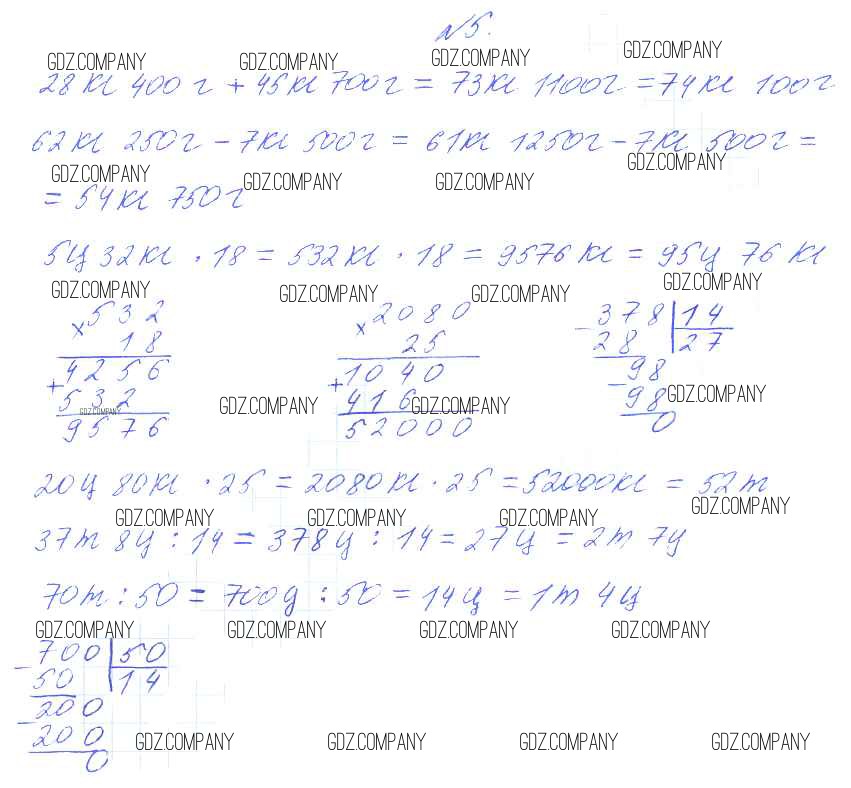 №5.
GDZ.COMPANY GDZ.COMPANY GDZ.COMPANY GDZ.COMPANY
28 кг 400 г + 45 кг 700 г = 73 кг 1100 г = 74 кг 100 г
62 кг 250 г - 7 кг 500 г = 61 кг 1250 г - 7 кг 500 г =
GDZ.COMPANY GDZ.COMPANY GDZ.COMPANY GDZ.COMPANY
= 54 кг 750 г
5 ц 32 кг · 18 = 532 кг · 18 = 9576 кг = 95 ц 76 кг
GDZ.COMPANY GDZ.COMPANY GDZ.COMPANY GDZ.COMPANY
× 532 × 2080 - 378 | 14
18 25 28 | 27
+ 4256 + 1040 - 98
532 416 98
GDZ.COMPANY GDZ.COMPANY GDZ.COMPANY GDZ.COMPANY
9576 52000 0
20 ц 80 кг · 25 = 2080 кг · 25 = 52000 кг = 52 т
GDZ.COMPANY GDZ.COMPANY GDZ.COMPANY GDZ.COMPANY
37 т 8 ц : 14 = 378 ц : 14 = 27 ц = 2 т 7 ц
70 т : 50 = 700 ц : 50 = 14 ц = 1 т 4 ц
GDZ.COMPANY GDZ.COMPANY GDZ.COMPANY GDZ.COMPANY
- 700 | 50
50 | 14
- 200
200
0
GDZ.COMPANY GDZ.COMPANY GDZ.COMPANY GDZ.COMPANY